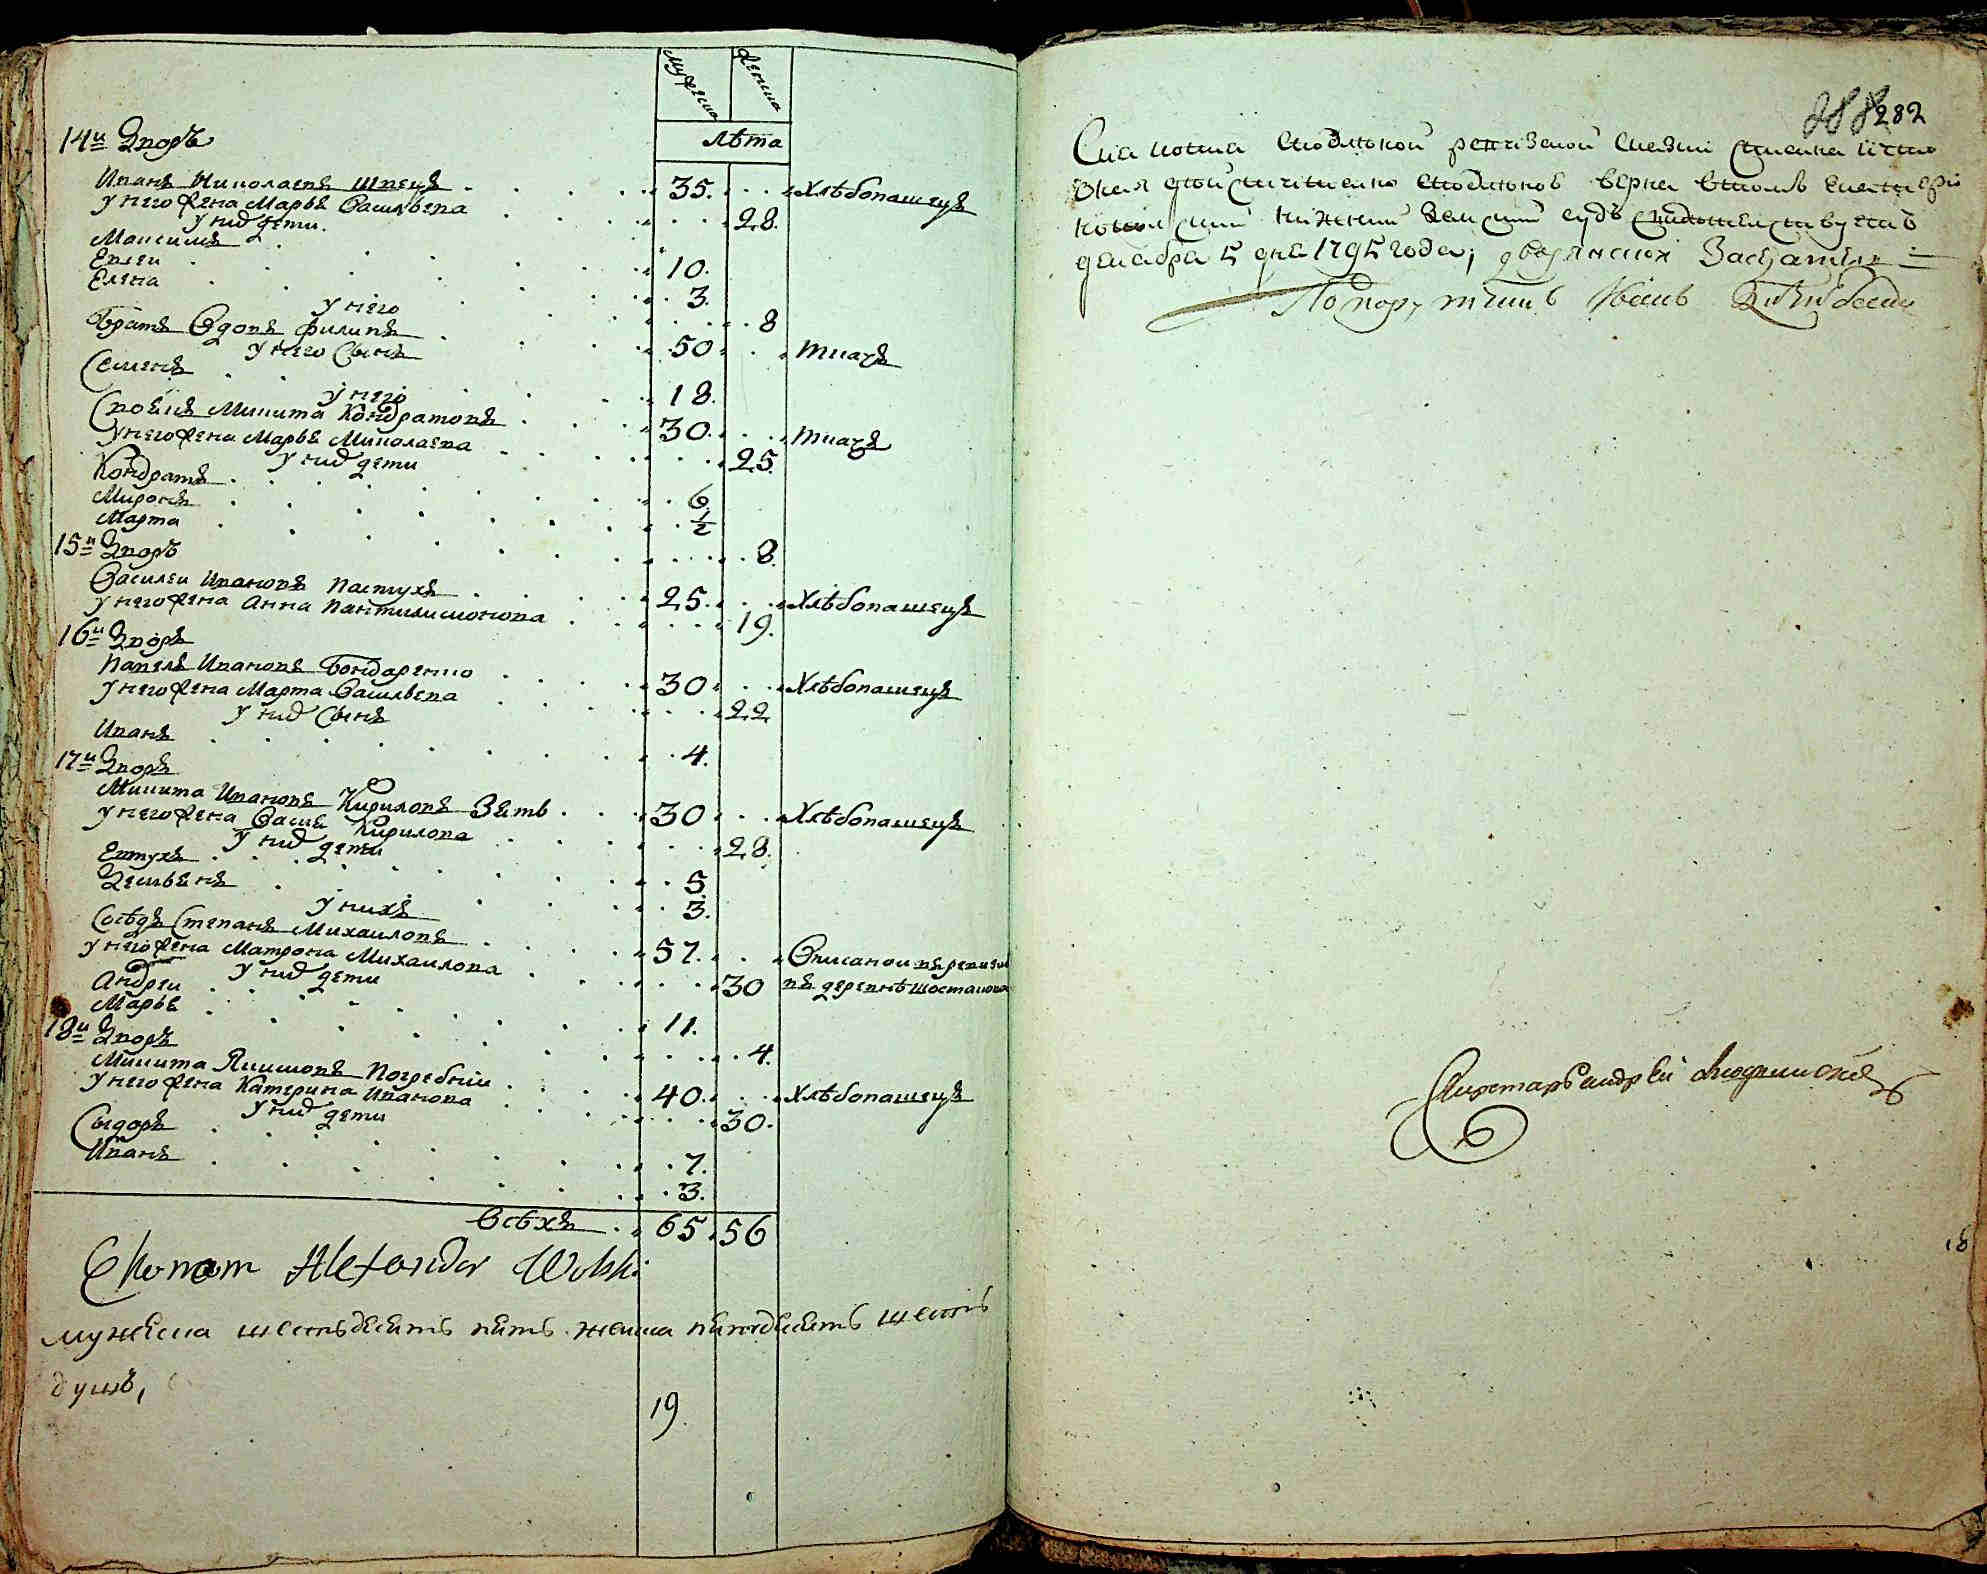 мужеска женска
лѣта
14й Дворъ
Иванъ Николаевъ Швецъ 35. Хлѣбопашецъ
у него жена Марья Васильева 28.
у них дети.
Максимъ 10.
Евсеи 3.
Елена 8
у него
братъ Вдовъ Филипъ 50 ткачъ
у него Сынъ
Семенъ 18.
у него
Своякъ Микита Кондратовъ 30. ткачъ
у него жена Марья Миколаева 25.
у них дети
Кондратъ 6.
Миронъ 1/2
Марта 8.
15й Дворъ
Василеи Ивановъ Пастухъ 25. Хлѣбопашецъ
у него жена Анна Пантилимонова 19.
16й Дворъ
Павелъ Ивановъ Бондаренко 30. Хлѣбопашецъ
у него жена Марта Васильева 22
у них Сынъ
Иванъ 4.
17й Дворъ
Микита Ивановъ Кириловъ Зять 30 Хлѣбопашецъ
у него жена Васса Кирилова 28.
у них дети
Евтухъ 5.
Демьянъ 3.
у нихъ
Сосѣдъ Степанъ Михаиловъ 57. Описанои въ ревизии
у него жена Матрона Михаилова 30 въ деревнѣ
у них дети
Андреи 11.
Марья 4.
18й Дворъ
Микита Якимовъ Погребнии 40. Хлѣбопашецъ
у него жена Катерина Иванова 30.
у них дети
Сыдоръ 7.
Иванъ 3.
Всѣхъ 65. 56
Ekonom Alexander Wolski
мужеска шестьдесятъ пять женска пятьдесятъ шесть
душъ,
19
288 282
Сия копия с подлѣнной ревизской сказки
верна в томъ
нижний земский судъ свидѣтельствуетъ
декабря 5 дня 1795 года; дворянской Заседатель
Подпорутчикъ
Секретарь андрей